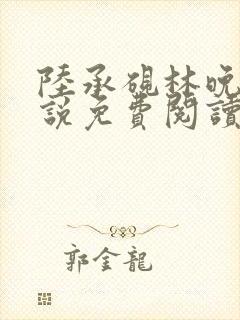 陸承硯林晚
說免費閱讀
郭金龍